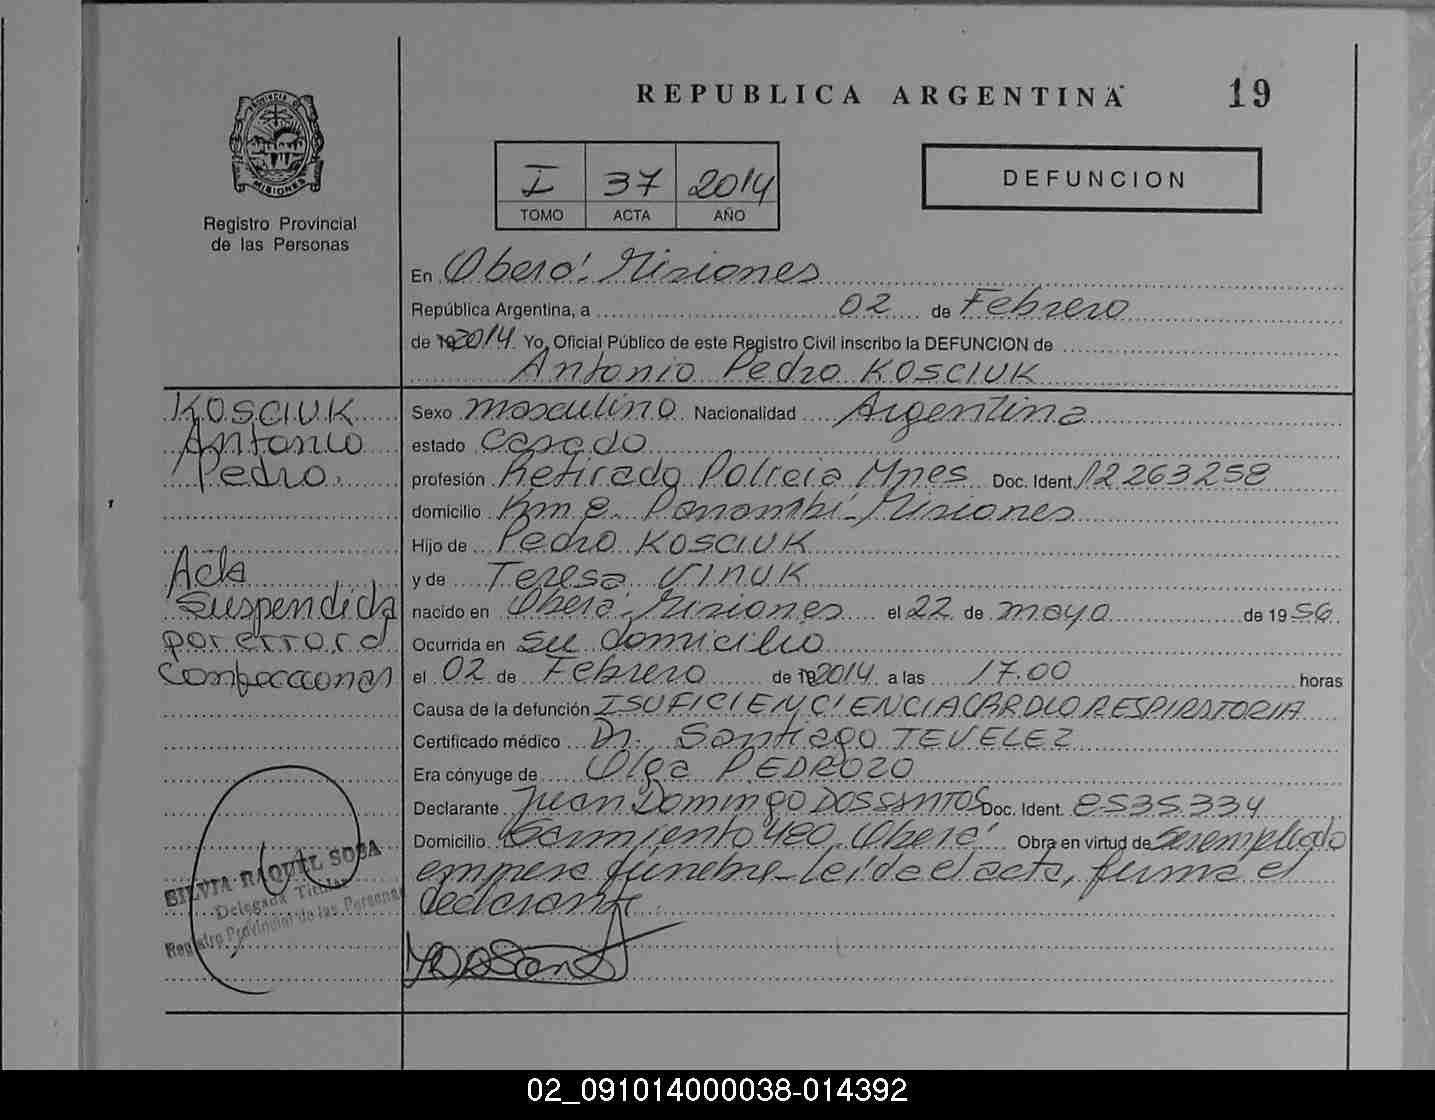 REPUBLICA ARGENTINA
19
PROVINCIA DE
MISIONES
Registro Provincial
de las Personas
I 37 2014
TOMO ACTA AÑO
DEFUNCION
En Oberá, Misiones
República Argentina, a 02 de Febrero
de 19 2014 Yo, Oficial Público de este Registro Civil inscribo la DEFUNCION de
Antonio Pedro KOSCIUK
KOSCIUK
Antonio
Pedro.
Acta
Suspendida
por error de
Confecciones
Sexo masculino Nacionalidad Argentina
estado Casado
profesión Retirado Policia Mnes Doc. Ident. 12 263 258
domicilio Km 8. Panambí - Misiones
Hijo de Pedro KOSCIUK
y de Teresa VINUK
nacido en Oberá, Misiones el 22 de mayo de 1956
Ocurrida en su domicilio
el 02 de Febrero de 19 2014 a las 17.00 horas
Causa de la defunción ISUFICIENCIENCIA CARDIO RESPIRATORIA
Certificado médico Dr. Santiago TEVELEZ
Era cónyuge de Olga PEDROZO
Declarante Juan Domingo DOS SANTOS Doc. Ident. 8.535.334
Domicilio Sarmiento 480. Oberá Obra en virtud de ser empleado
empresa fúnebre - Leída el acta, firma el
declarante.
SILVIA RAQUEL SOSA
Delegada Titular
Registro Provincial de las Personas
02_091014000038-014392